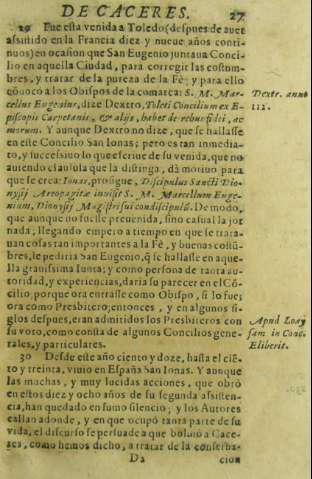 DE CACERES. 27
29 Fue esta venida a Toledo (despues de auer
assistido en la Francia diez y nueue años conti-
nuos) en ocasion que San Eugenio juntaua Conci-
lio en aquella Ciudad, para corregir las costum-
bres, y tratar de la pureza de la Fè; y para ello
conuocò a los Obispos de la comarca: S. M. Mar-
cellus Eugenius, dize Dextro, Toleti Concilium ex E-
piscopis Carpetanis, & alijs, habet de rebus fidei, ac
morum. Y aunque Dextro no dize, que se hallasse
en este Concilio San Ionas; pero es tan inmedia-
to, y successiuo lo que escriue de su venida, que no
auiendo clausula que la distinga, dà motiuo para
que se crea: Ionas, prosigue, Discipulus Sancti Dio-
nysij Areopagitæ inuisit S. M. Marcellum Euge-
nium, Dionysij Magistri sui condiscipulũ. De modo,
que aunque no fuesse preuenida, sino casual la jor
nada; llegando empero a tiempo en que se trata-
uan cosas tan importantes a la Fè, y buenas costũ-
bres, le pediria San Eugenio, q̃ se hallasse en aque-
lla grauissima Iunta; y como persona de tanta au-
toridad, y experiencias, daria su parecer en el Cõ-
cilio, porque ora entrasse como Obispo, si lo fue;
ora como Presbitero; entonces, y en algunos si-
glos despues, eran admitidos los Presbiteros con
su voto, como consta de algunos Concilios gene-
rales, y particulares.
30 Desde este año ciento y doze, hasta el ciẽ-
to y treinta, viuio en España San Ionas. Y aunque
las muchas, y muy lucidas acciones, que obrò
en estos diez y ocho años de su segunda assisten-
cia, han quedado en sumo silencio; y los Autores
callan adonde, y en que ocupò tanta parte de su
vida, el discurso se persuade a que boluiò a Cace-
res, como hemos dicho, a tratar de la conserba-
D2 cion
Dextr. anno
112.
Apud Loay
sam in Conc.
Eliberit.